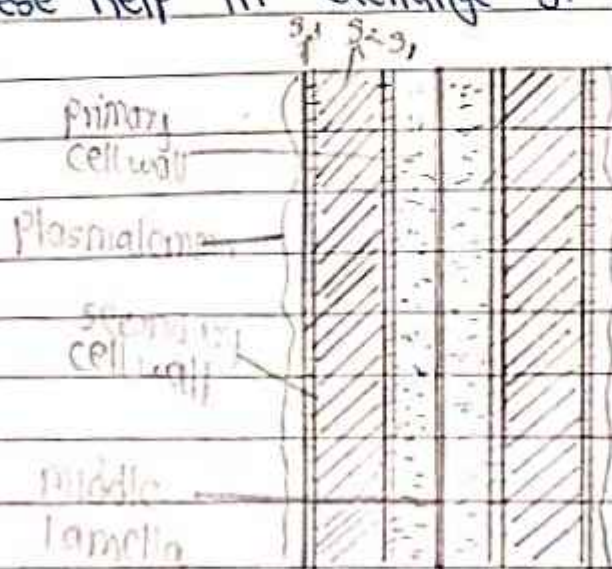 ese help in exchange o
S₁ S₂ S₁
Primary
cell wall
Plasmalemm
Secondary
cell wall
Middle
lamella